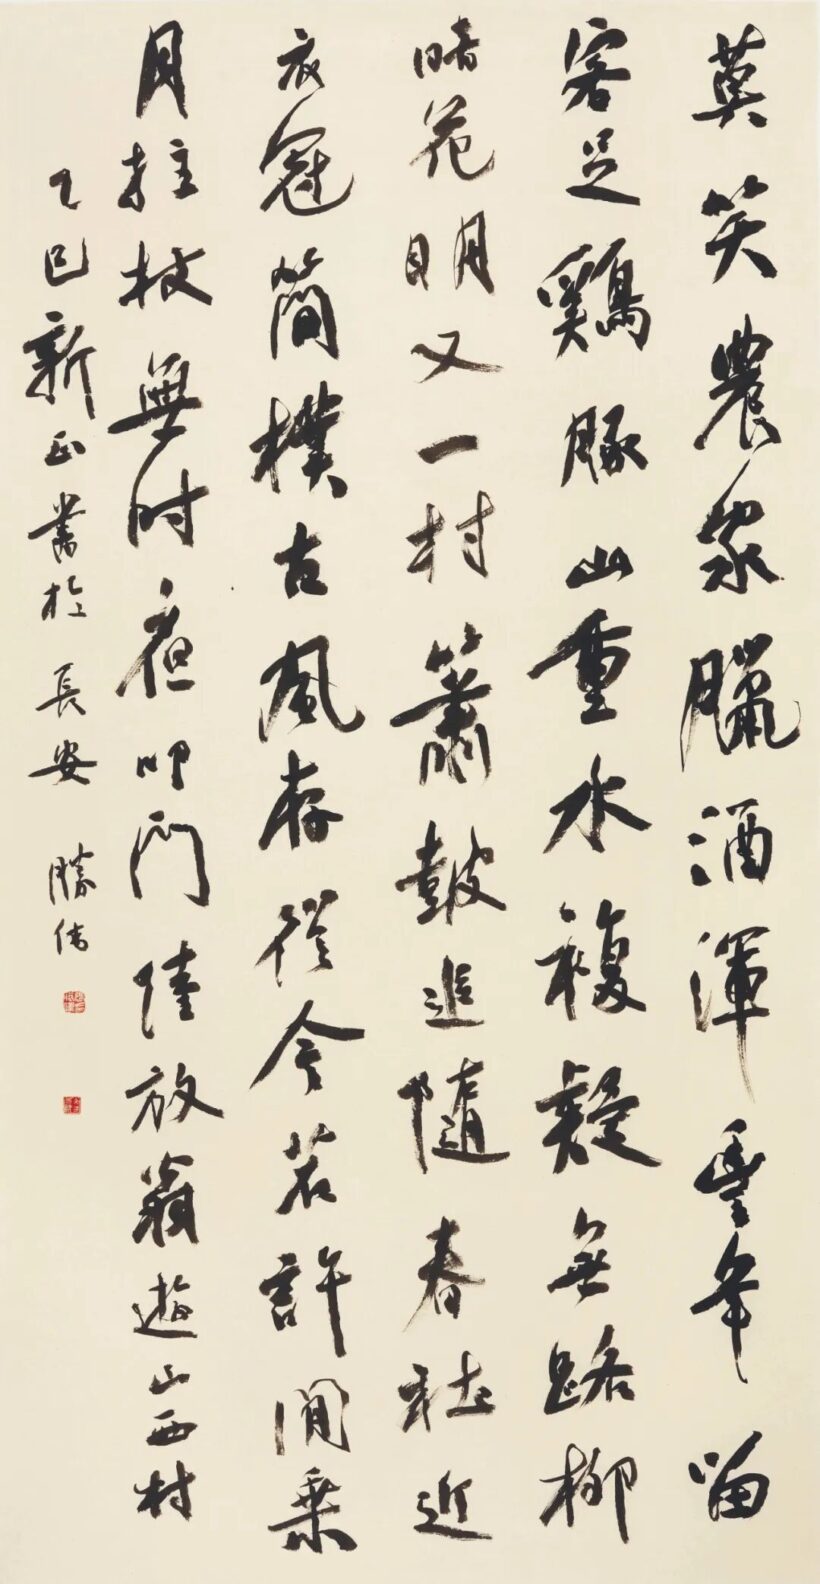 莫笑農家臘酒渾豐年留
客足鷄豚山重水複疑無路柳
暗花明又一村簫鼓追隨春社近
衣冠簡樸古風存從今若許閒乘
月拄杖無时夜叩門陸放翁遊山西村
乙巳新正書於長安 勝偉